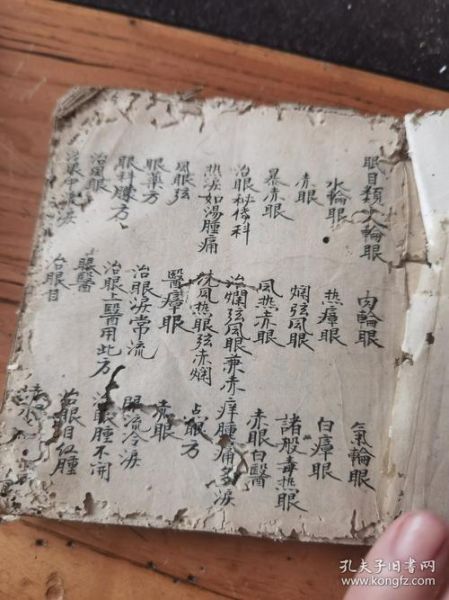 眼目類 火輪眼 肉輪眼 氣輪眼
水輪眼 熱瘴眼 白瘴眼
赤眼 爛弦風眼 諸般毒熱眼
暴赤眼 風热赤眼 赤眼白醫
治眼秘傳科 治爛弦風眼兼赤痒腫痛多淚
热淚如湯腫痛 洗風热眼弦赤爛 点眼方
風眼弦 醫瘴眼
眼藥方 治眼淚常流 眼流冷淚
眼科勝方 治眼上醫用此方 眼腫不開
治風眼 眼醫 治眼目紅腫
治眼 淚 治眼目
孔夫子旧书网
www.kongfz.com